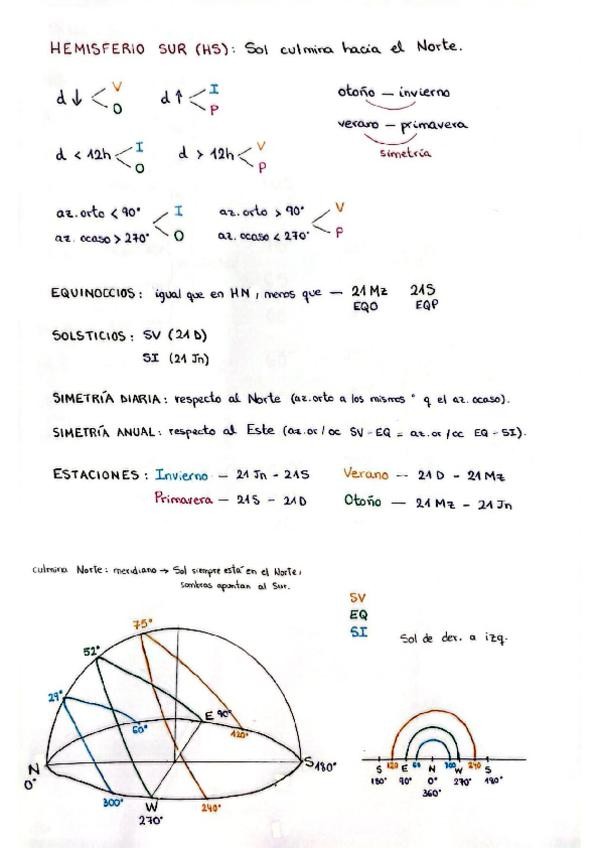 HEMISFERIO SUR (HS): Sol culmina hacia el Norte.
d ↓ < V
O
d ↑ < I
P
otoño — invierno
verano — primavera
simetría
d < 12h < I
O
d > 12h < V
P
az. orto < 90°
az. ocaso > 270°
I
O
az. orto > 90°
az. ocaso < 270°
V
P
EQUINOCCIOS: igual que en HN, menos que — 21 Mz 21S
EQO EQP
SOLSTICIOS: SV (21 D)
SI (21 Jn)
SIMETRÍA DIARIA: respecto al Norte (az. orto a los mismos ° q el az. ocaso).
SIMETRÍA ANUAL: respecto al Este (az. or/oc SV-EQ = az. or/oc EQ-SI).
ESTACIONES: Invierno — 21 Jn - 21S Verano — 21 D - 21 Mz
Primavera — 21S - 21D Otoño — 21 Mz - 21 Jn
culmina Norte: meridiano → Sol siempre está en el Norte,
sombras apuntan al Sur.
SV
EQ
SI
Sol de der. a izq.
75°
52°
29°
E 90°
60°
120°
N
0°
S 180°
300°
W
270°
240°
S 120 E 60 N 300 W 240 S
180° 90° 0° 270° 180°
360°